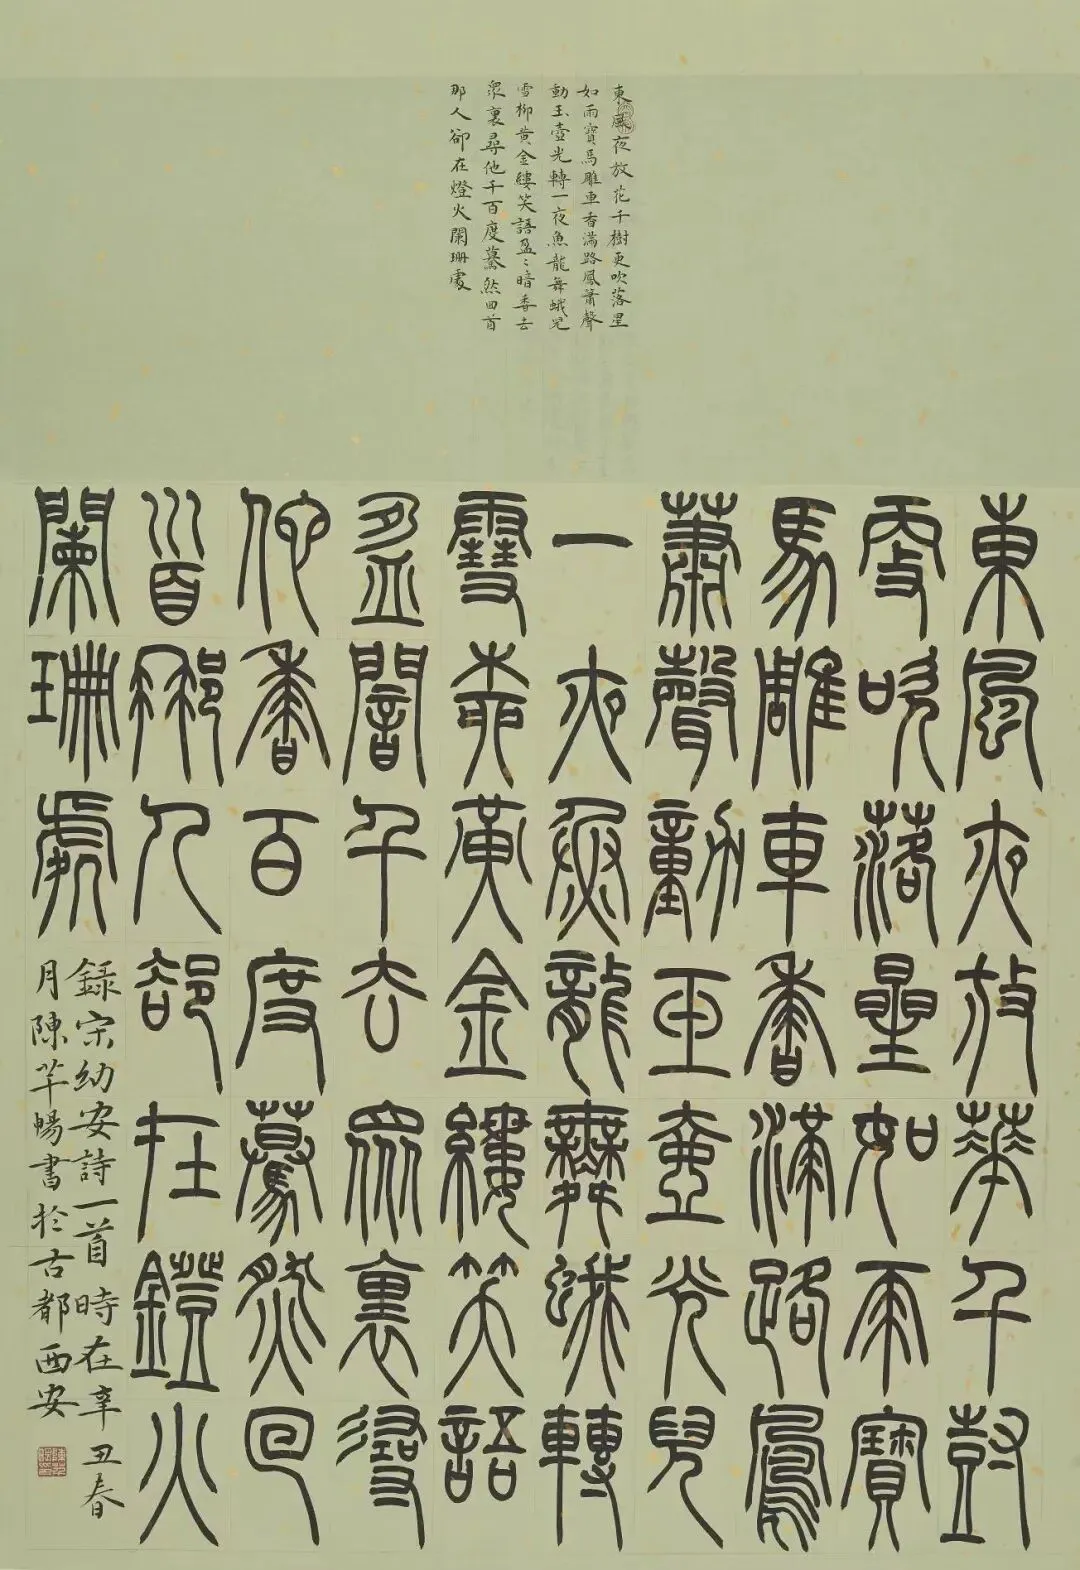 東風夜放花千樹更吹落星
如雨寶馬雕車香滿路鳳簫聲
動玉壺光轉一夜魚龍舞蛾兒
雪柳黄金縷笑語盈〻暗香去
眾裏尋他千百度驀然回首
那人卻在燈火闌珊處
東風夜放華千尌
更吹落星如雨寶
馬雕車香滿路鳳
蕭聲動玉壺光兒
一夜魚龍舞蛾轉
雪柳黃金縷笑語
盈闇千去眾裏尋
他香百度驀然回
首那人卻在鐙火
闌珊處
録宋幼安詩一首時在辛丑春
月陳芊暢書於古都西安